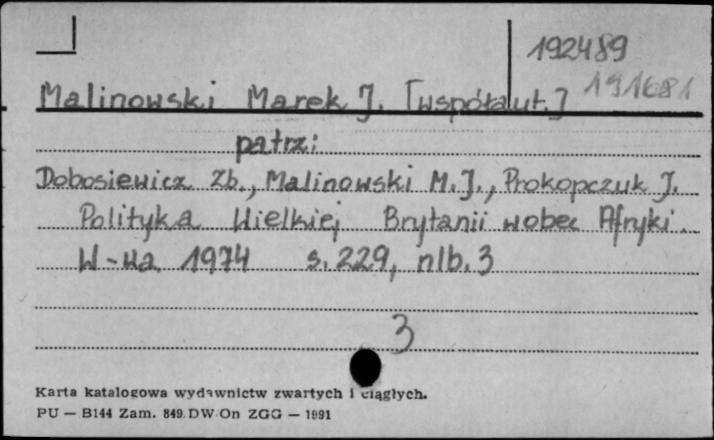 192489
191681
Malinowski Marek J. [współaut.]
patrz:
Dobosiewicz Zb., Malinowski M.J., Prokopczuk J.
Polityka Wielkiej Brytanii wobec Afryki.
W-wa 1974 s. 229, nlb. 3
3
Karta katalogowa wydawnictw zwartych i ciągłych.
PU — B144 Zam. 849. DW On ZGG — 1991